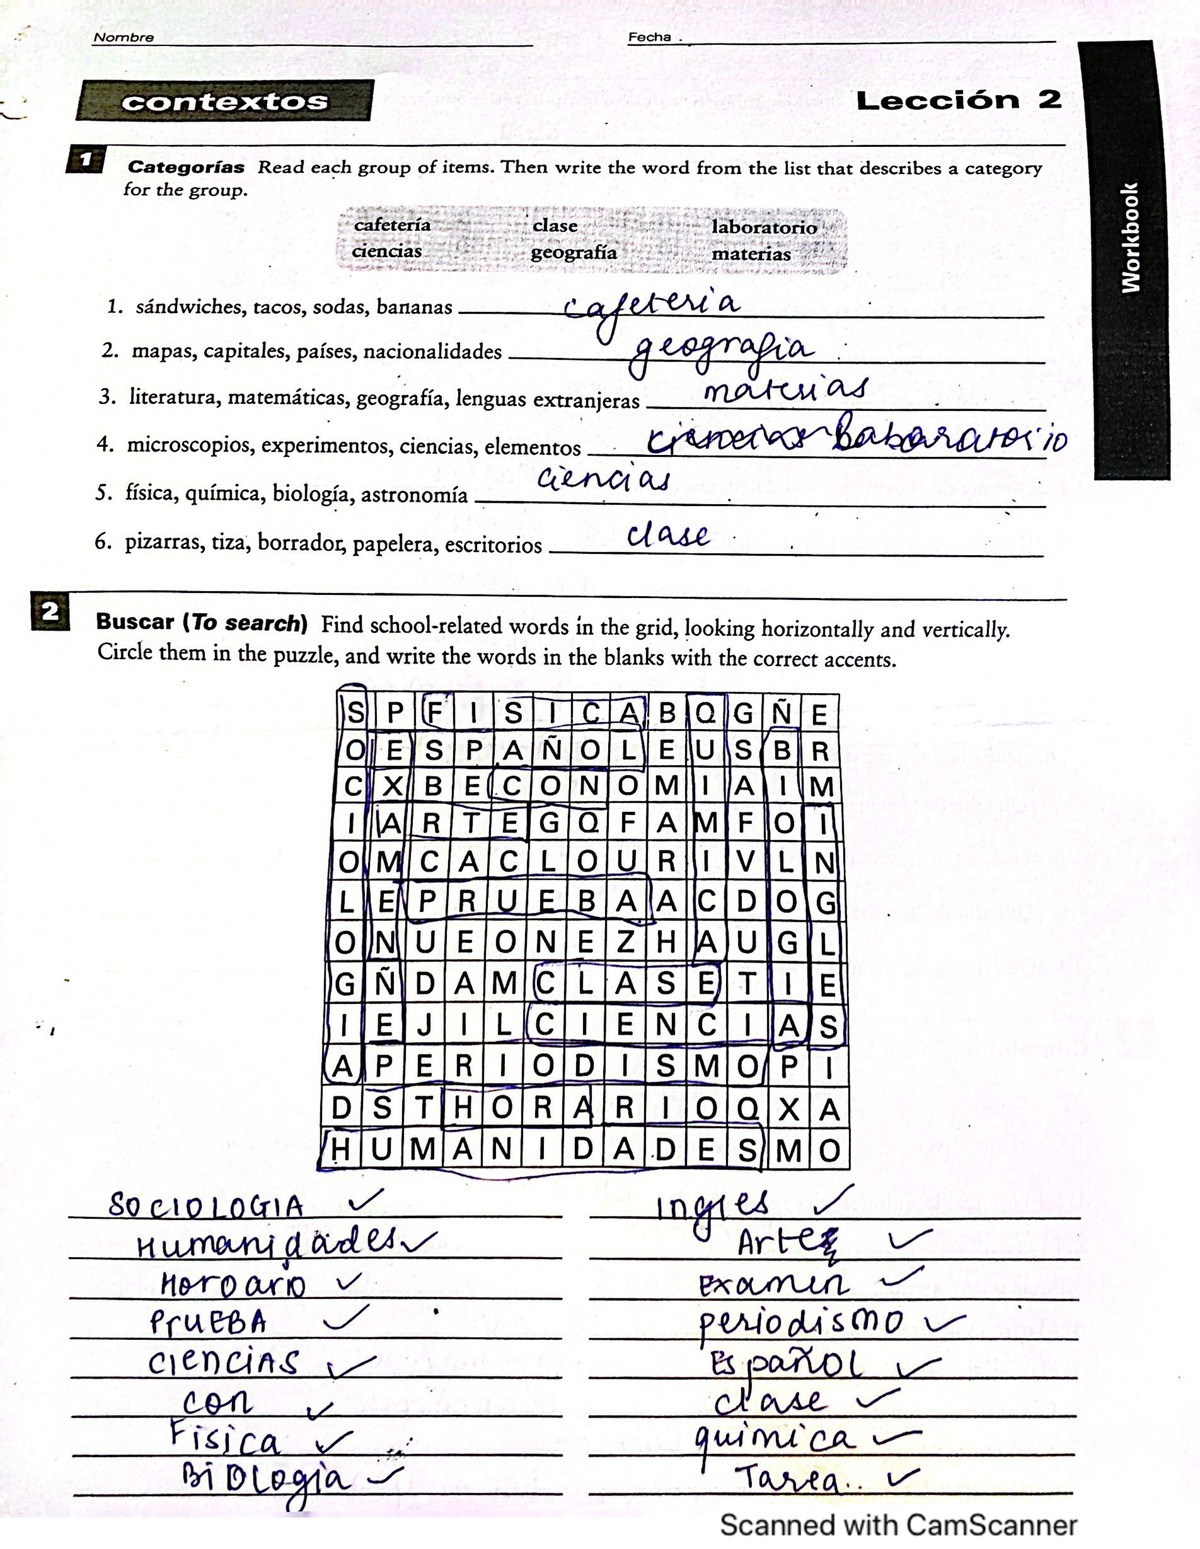 Nombre Fecha
contextos Lección 2
Workbook
1 Categorías Read each group of items. Then write the word from the list that describes a category
for the group.
cafetería clase laboratorio
ciencias geografía materias
1. sándwiches, tacos, sodas, bananas cafeteria
2. mapas, capitales, países, nacionalidades geografia
3. literatura, matemáticas, geografía, lenguas extranjeras materias
4. microscopios, experimentos, ciencias, elementos ciencias Babaratorio
5. física, química, biología, astronomía ciencias
6. pizarras, tiza, borrador, papelera, escritorios clase
2 Buscar (To search) Find school-related words in the grid, looking horizontally and vertically.
Circle them in the puzzle, and write the words in the blanks with the correct accents.
S P F I S I C A B Q G Ñ E
O E S P A Ñ O L E U S B R
C X B E C O N O M I A I M
I A R T E G Q F A M F O I
O M C A C L O U R I V L N
L E P R U E B A A C D O G
O N U E O N E Z H A U G L
G Ñ D A M C L A S E T I E
I E J I L C I E N C I A S
A P E R I O D I S M O P I
D S T H O R A R I O Q X A
H U M A N I D A D E S M O
SOCIOLOGIA ✓ Ingles ✓
Humanidades ✓ Arte ✓
Horoario ✓ Examen ✓
PrUEBA ✓ periodismo ✓
CIENCIAS ✓ Español ✓
con ✓ clase ✓
Fisica ✓ quimica ✓
BiOLogia ✓ Tarea.. ✓
Scanned with CamScanner